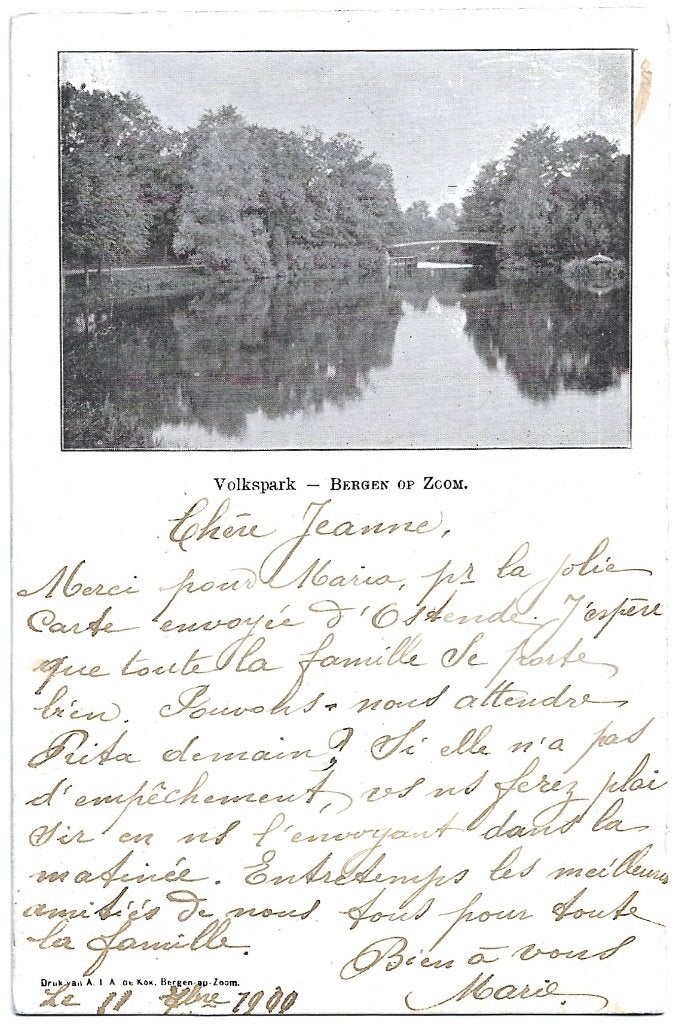 Volkspark — BERGEN OP ZOOM.
Chère Jeanne,
Merci pour Maria, pr la jolie
carte envoyée d'Ostende. J'espère
que toute la famille se porte
bien. Pouvons-nous attendre
Rita demain? Si elle n'a pas
d'empêchement, vs ns ferez plai
sir en ns l'envoyant dans la
matinée. Entretemps les meilleures
amitiés de nous tous pour toute
la famille.
Bien à vous
Marie
Druk van A. I. A. de Kok, Bergen-op-Zoom.
Le 11 1900